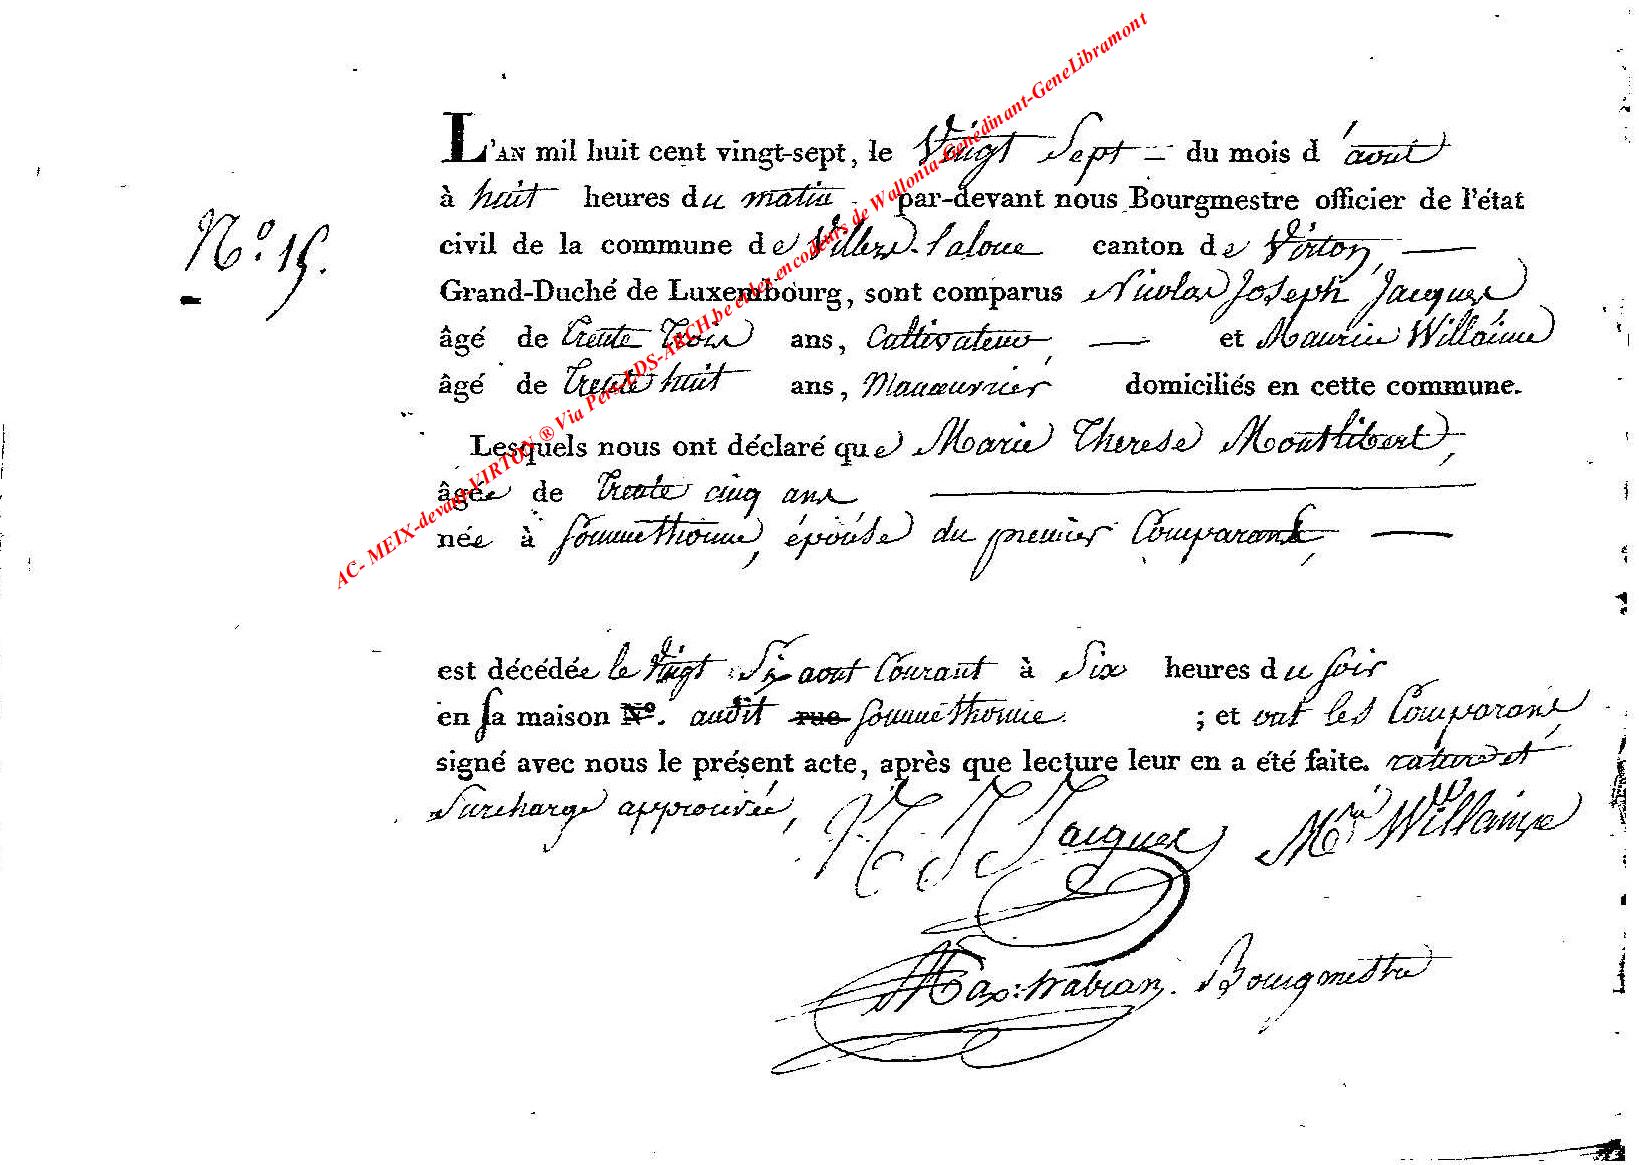 AC- MEIX-devant-VIRTON ® Via Pers LDS-ARCH.be et les encodeurs de Wallonia-Genedinant-GeneLibramont
N.o 15.
L'AN mil huit cent vingt-sept, le Vingt Sept du mois d'aout
à huit heures du matin par-devant nous Bourgmestre officier de l'état
civil de la commune de Villers-laloue canton de Virton,
Grand-Duché de Luxembourg, sont comparus Nicolas Joseph Jacques
âgé de trente trois ans, Cultivateur, et Maurice Willaime
âgé de trente huit ans, Manoeuvrier domiciliés en cette commune.
Lesquels nous ont déclaré que Marie Therese Montlibert,
âgée de trente cinq ans
née à Sommethonne, épouse du premier Comparant,
est décédée le vingt Six aout Courant à Six heures du soir
en sa maison No. audit rue Sommethonne. ; et ont les Comparans
signé avec nous le présent acte, après que lecture leur en a été faite. rature et
Surcharge approuvée,
N J Jacques Mri Willaime
Max: Bourgmestre